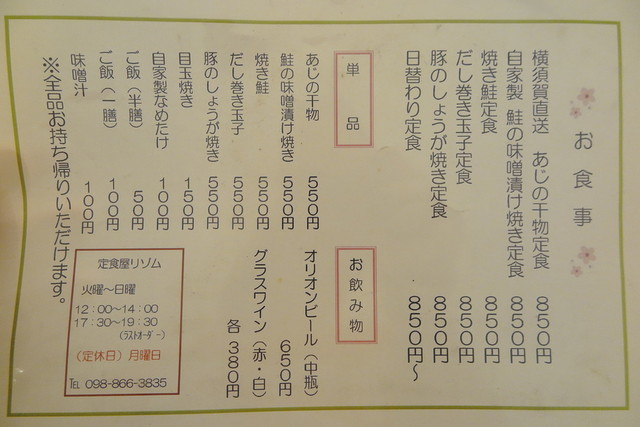 お食事
横須賀直送　あじの干物定食　８５０円
自家製　鮭の味噌漬け焼き定食　８５０円
焼き鮭定食　８５０円
だし巻き玉子定食　８５０円
豚のしょうが焼き定食　８５０円
日替わり定食　８５０円～
単品
あじの干物　５５０円
鮭の味噌漬け焼き　５５０円
焼き鮭　５５０円
だし巻き玉子　５５０円
豚のしょうが焼き　５５０円
目玉焼き　１５０円
自家製なめたけ　１００円
ご飯（半膳）　５０円
ご飯（一膳）　１００円
味噌汁　１００円
※全品お持ち帰りいただけます。
お飲み物
オリオンビール（中瓶）
６５０円
グラスワイン（赤・白）
各　３８０円
定食屋リゾム
火曜～日曜
12：00～14：00
17：30～19：30
（ﾗｽﾄｵｰﾀﾞｰ）
（定休日）月曜日
TEL 098-866-3835